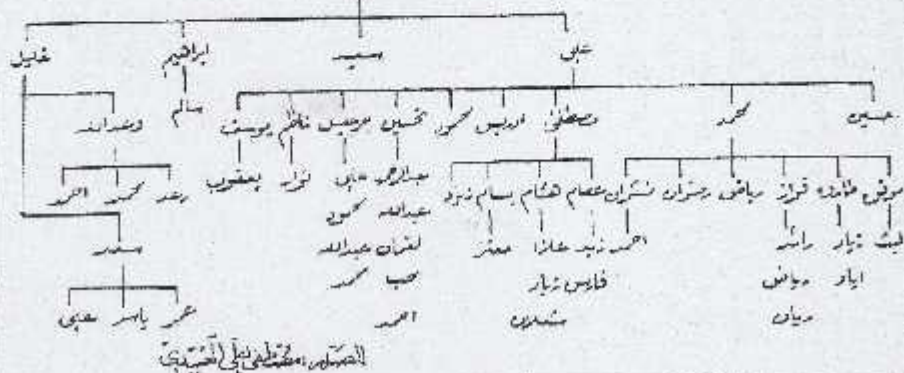 علي سعيد ابراهيم خليل
حسين محمد مصطفى ادريس محمود تحسين جرجيس ناظم يوسف سالم وعدالله
موفق طارق فواز رياض رمزان نشوان عصام هشام بسام زيد عبدالرحمن علي نزار يعقوب رعد محمد احمد
ليث زياد رائد احمد زيد علاء معتز عبدالله محمود سعد
اياد رياض فارس زياد لقمان عبدالله
محب محمد
احمد عمر ياسر يحيى
المصدر: مصطفى علي العبيدي